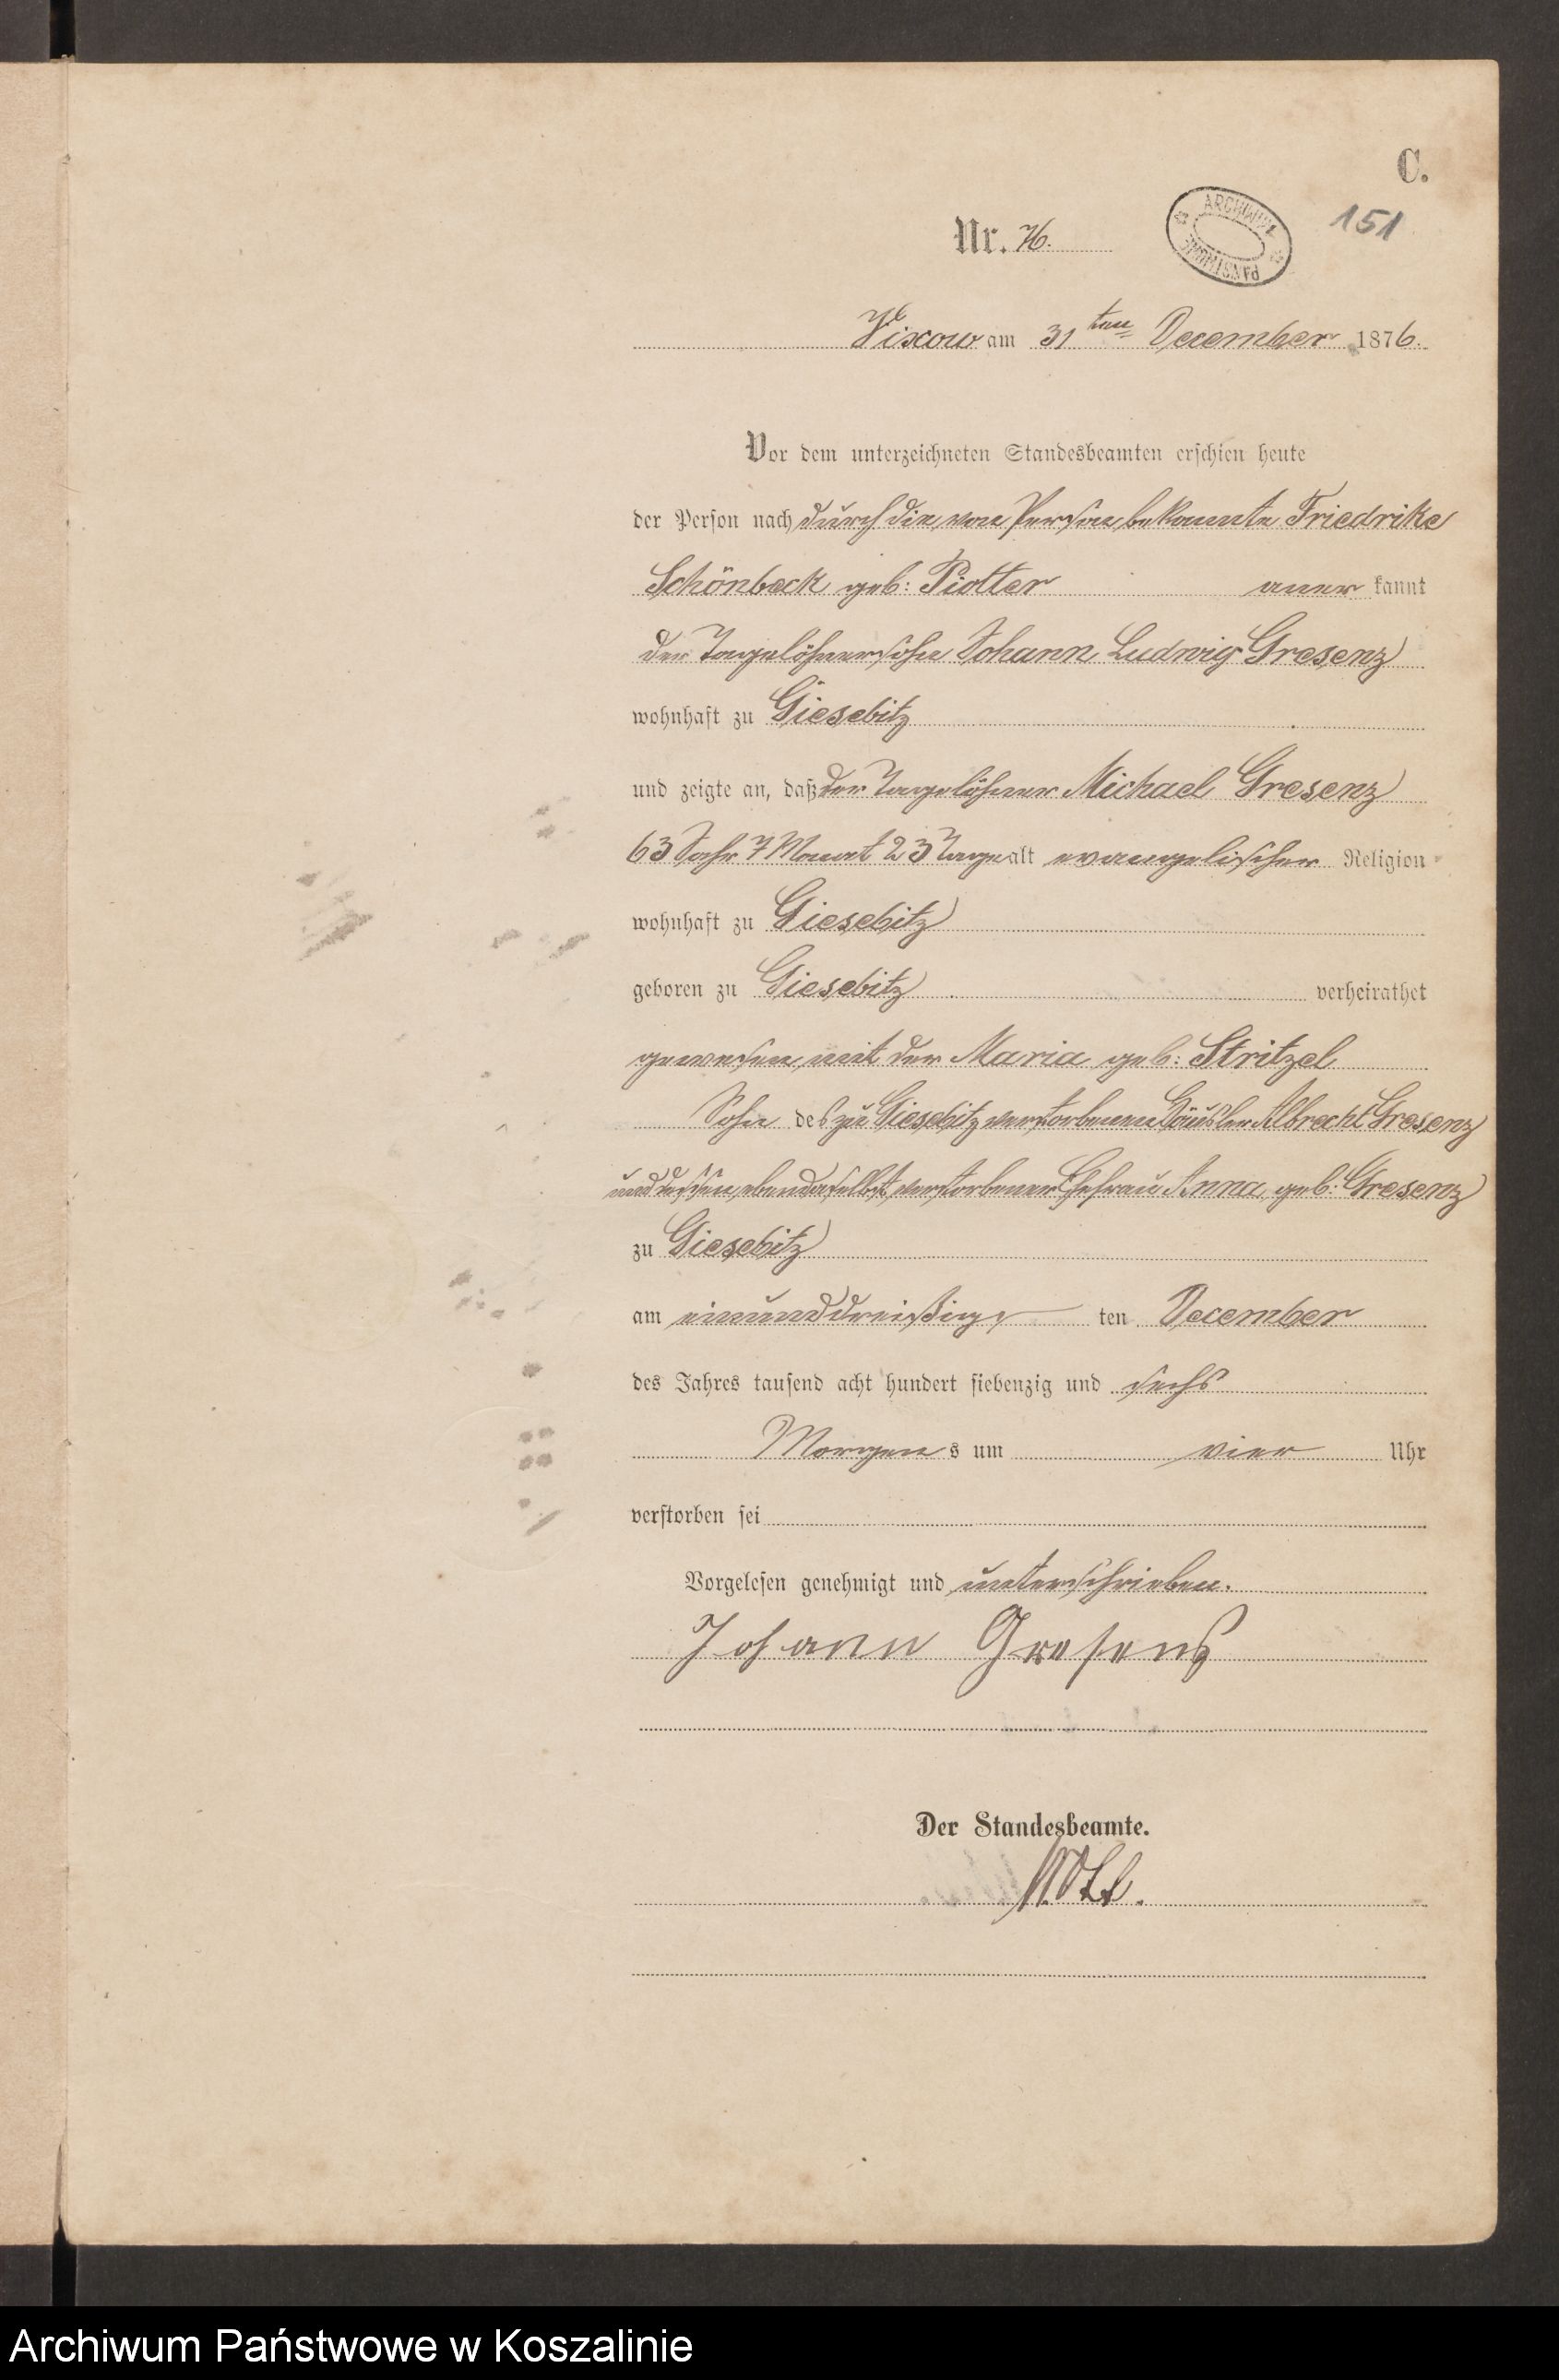 C.
151
ARCHIWUM PAŃSTWOWE
Nr. 76.
Vixow am 31ten December 1876.
Vor dem unterzeichneten Standesbeamten erschien heute
der Person nach durch die, von Person bekannte Friedrike
Schönbeck geb: Piotter aner kannt
der Tagelöhnersohn Johann Ludwig Gresenz
wohnhaft zu Giesebitz
und zeigte an, daß der Tagelöhner Michael Gresenz
63 Jahr 7 Monat 23 Tage alt evangelischer Religion
wohnhaft zu Giesebitz
geboren zu Giesebitz verheirathet
gewesen, mit der Maria geb: Stritzel
Sohn des zu Giesebitz verstorbenen Häusler Albrecht Gresenz
und dessen, ebendaselbst verstorbener Ehefrau Anna, geb. Gresenz
zu Giesebitz
am einunddreißigs ten December
des Jahres tausend acht hundert siebenzig und sechs
Morgen s um vier Uhr
verstorben sei
Vorgelesen genehmigt und unterschrieben.
Johann Gresens
Der Standesbeamte.
Archiwum Państwowe w Koszalinie